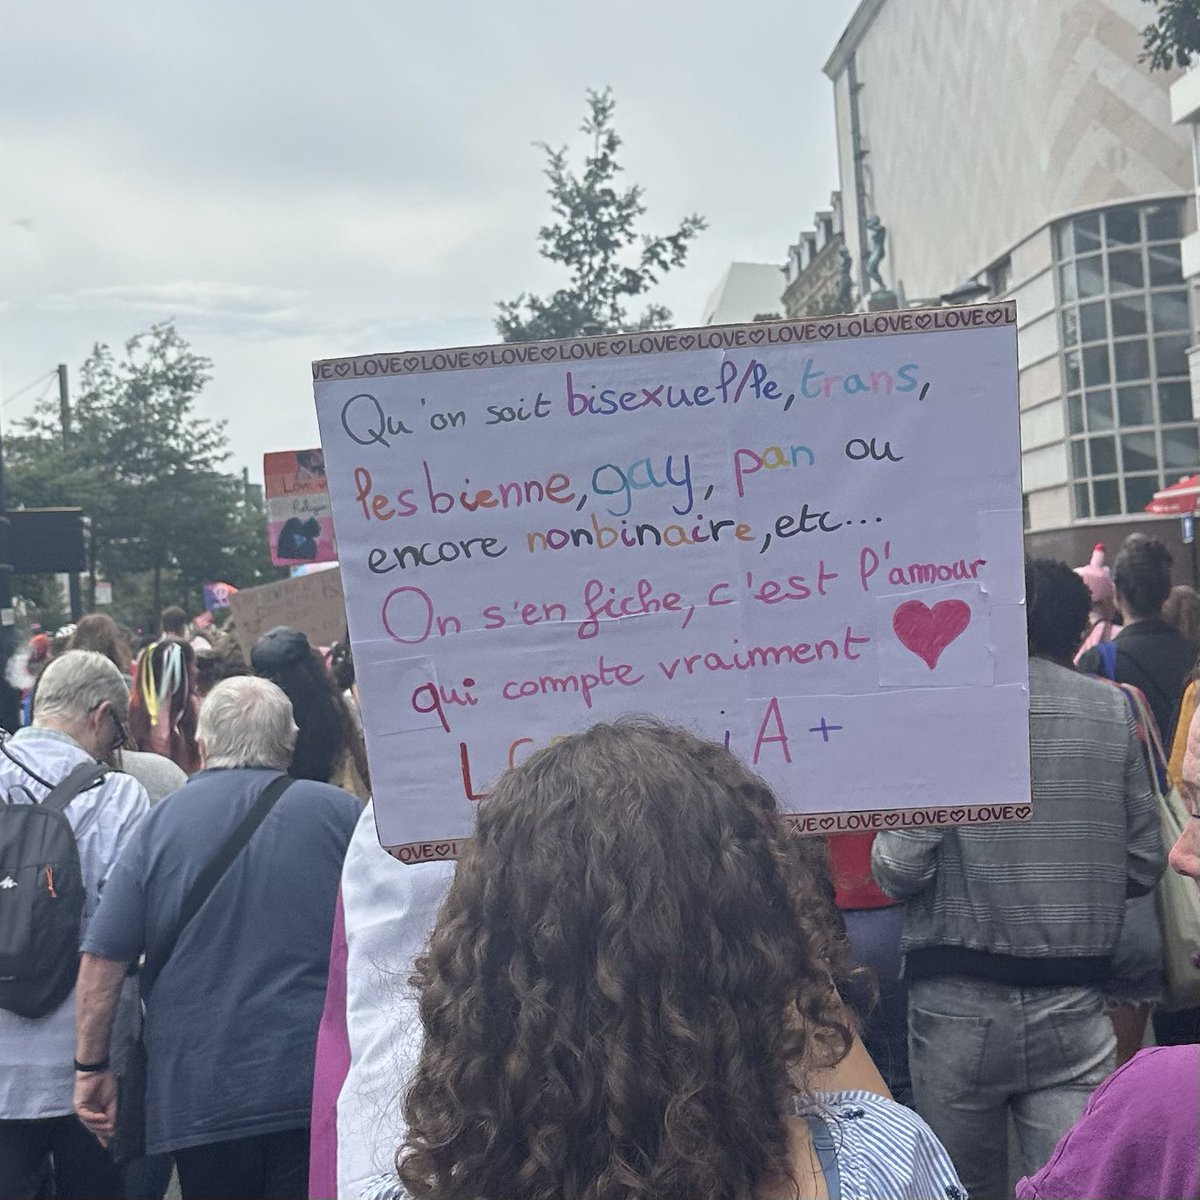 VE♡LOVE♡LOVE♡LOVE♡LOVE♡LOVE♡LOVE♡LOLOVE♡LOVE♡L
Qu'on soit bisexuel/le, trans,
lesbienne, gay, pan ou
encore nonbinaire, etc...
On s'en fiche, c'est l'amour
qui compte vraiment
iA+
♡LOVE♡L
VE♡LOVE♡LOVE♡LOVE♡
Love